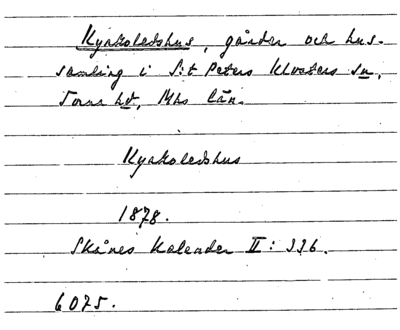 Kyrkoledshus, gårdar och hus-
samling i S:t Peters Klosters sn,
Torna hd, Mhs län.
Kyrkoledshus
1878.
Skånes Kalender II: 336.
6075.